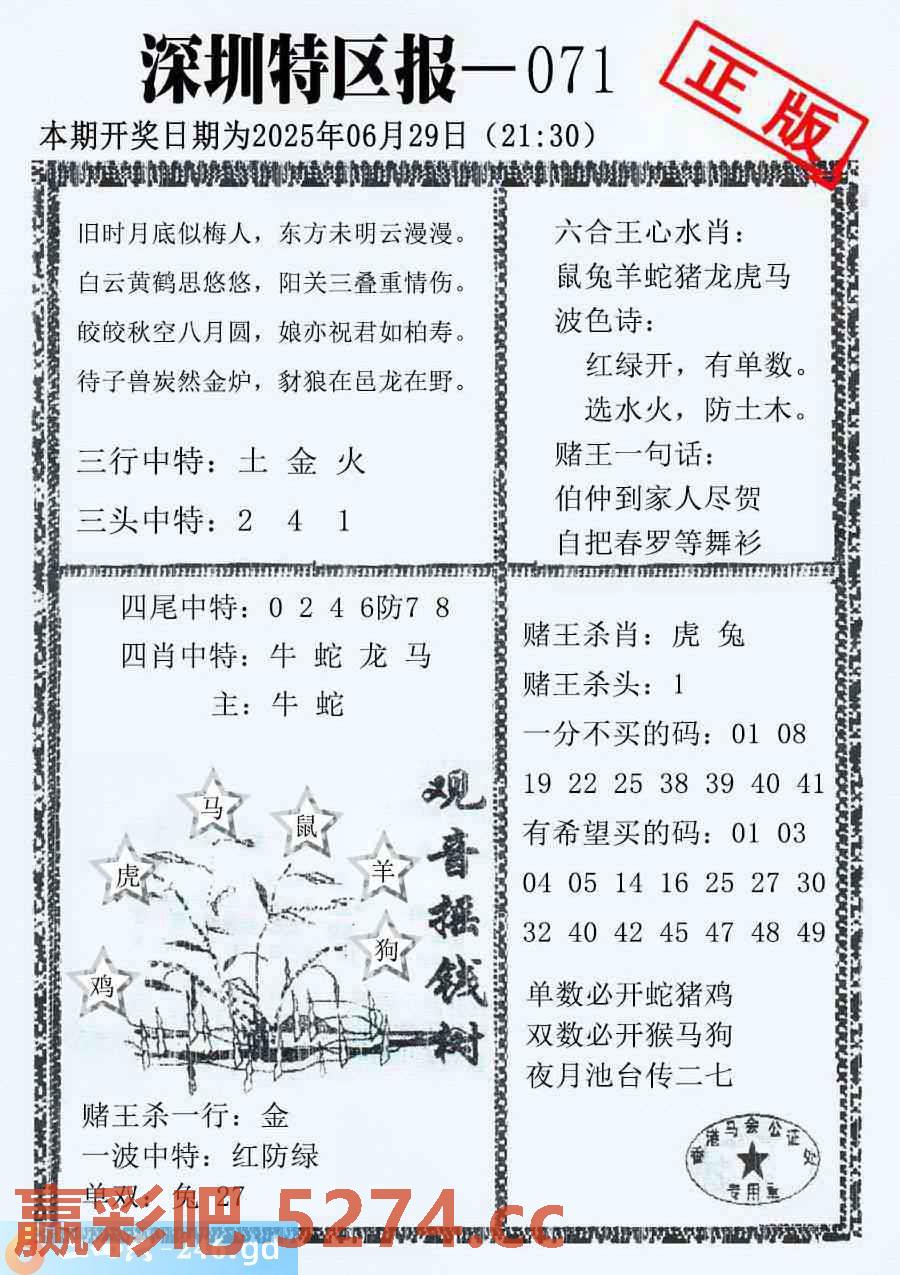 深圳特区报—071
正版
本期开奖日期为2025年06月29日（21:30）
旧时月底似梅人，东方未明云漫漫。
白云黄鹤思悠悠，阳关三叠重情伤。
皎皎秋空八月圆，娘亦祝君如柏寿。
待子兽炭然金炉，豺狼在邑龙在野。
三行中特：土 金 火
三头中特：2 4 1
六合王心水肖：
鼠兔羊蛇猪龙虎马
波色诗：
红绿开，有单数。
选水火，防土木。
赌王一句话：
伯仲到家人尽贺
自把春罗等舞衫
四尾中特：0 2 4 6防7 8
四肖中特：牛 蛇 龙 马
主：牛 蛇
观音摇钱树
马
鼠
虎
羊
狗
鸡
赌王杀一行：金
一波中特：红防绿
单双：兔 27
赌王杀肖：虎 兔
赌王杀头：1
一分不买的码：01 08
19 22 25 38 39 40 41
有希望买的码：01 03
04 05 14 16 25 27 30
32 40 42 45 47 48 49
单数必开蛇猪鸡
双数必开猴马狗
夜月池台传二七
香港马会公证处
专用章
赢彩吧 5274.cc